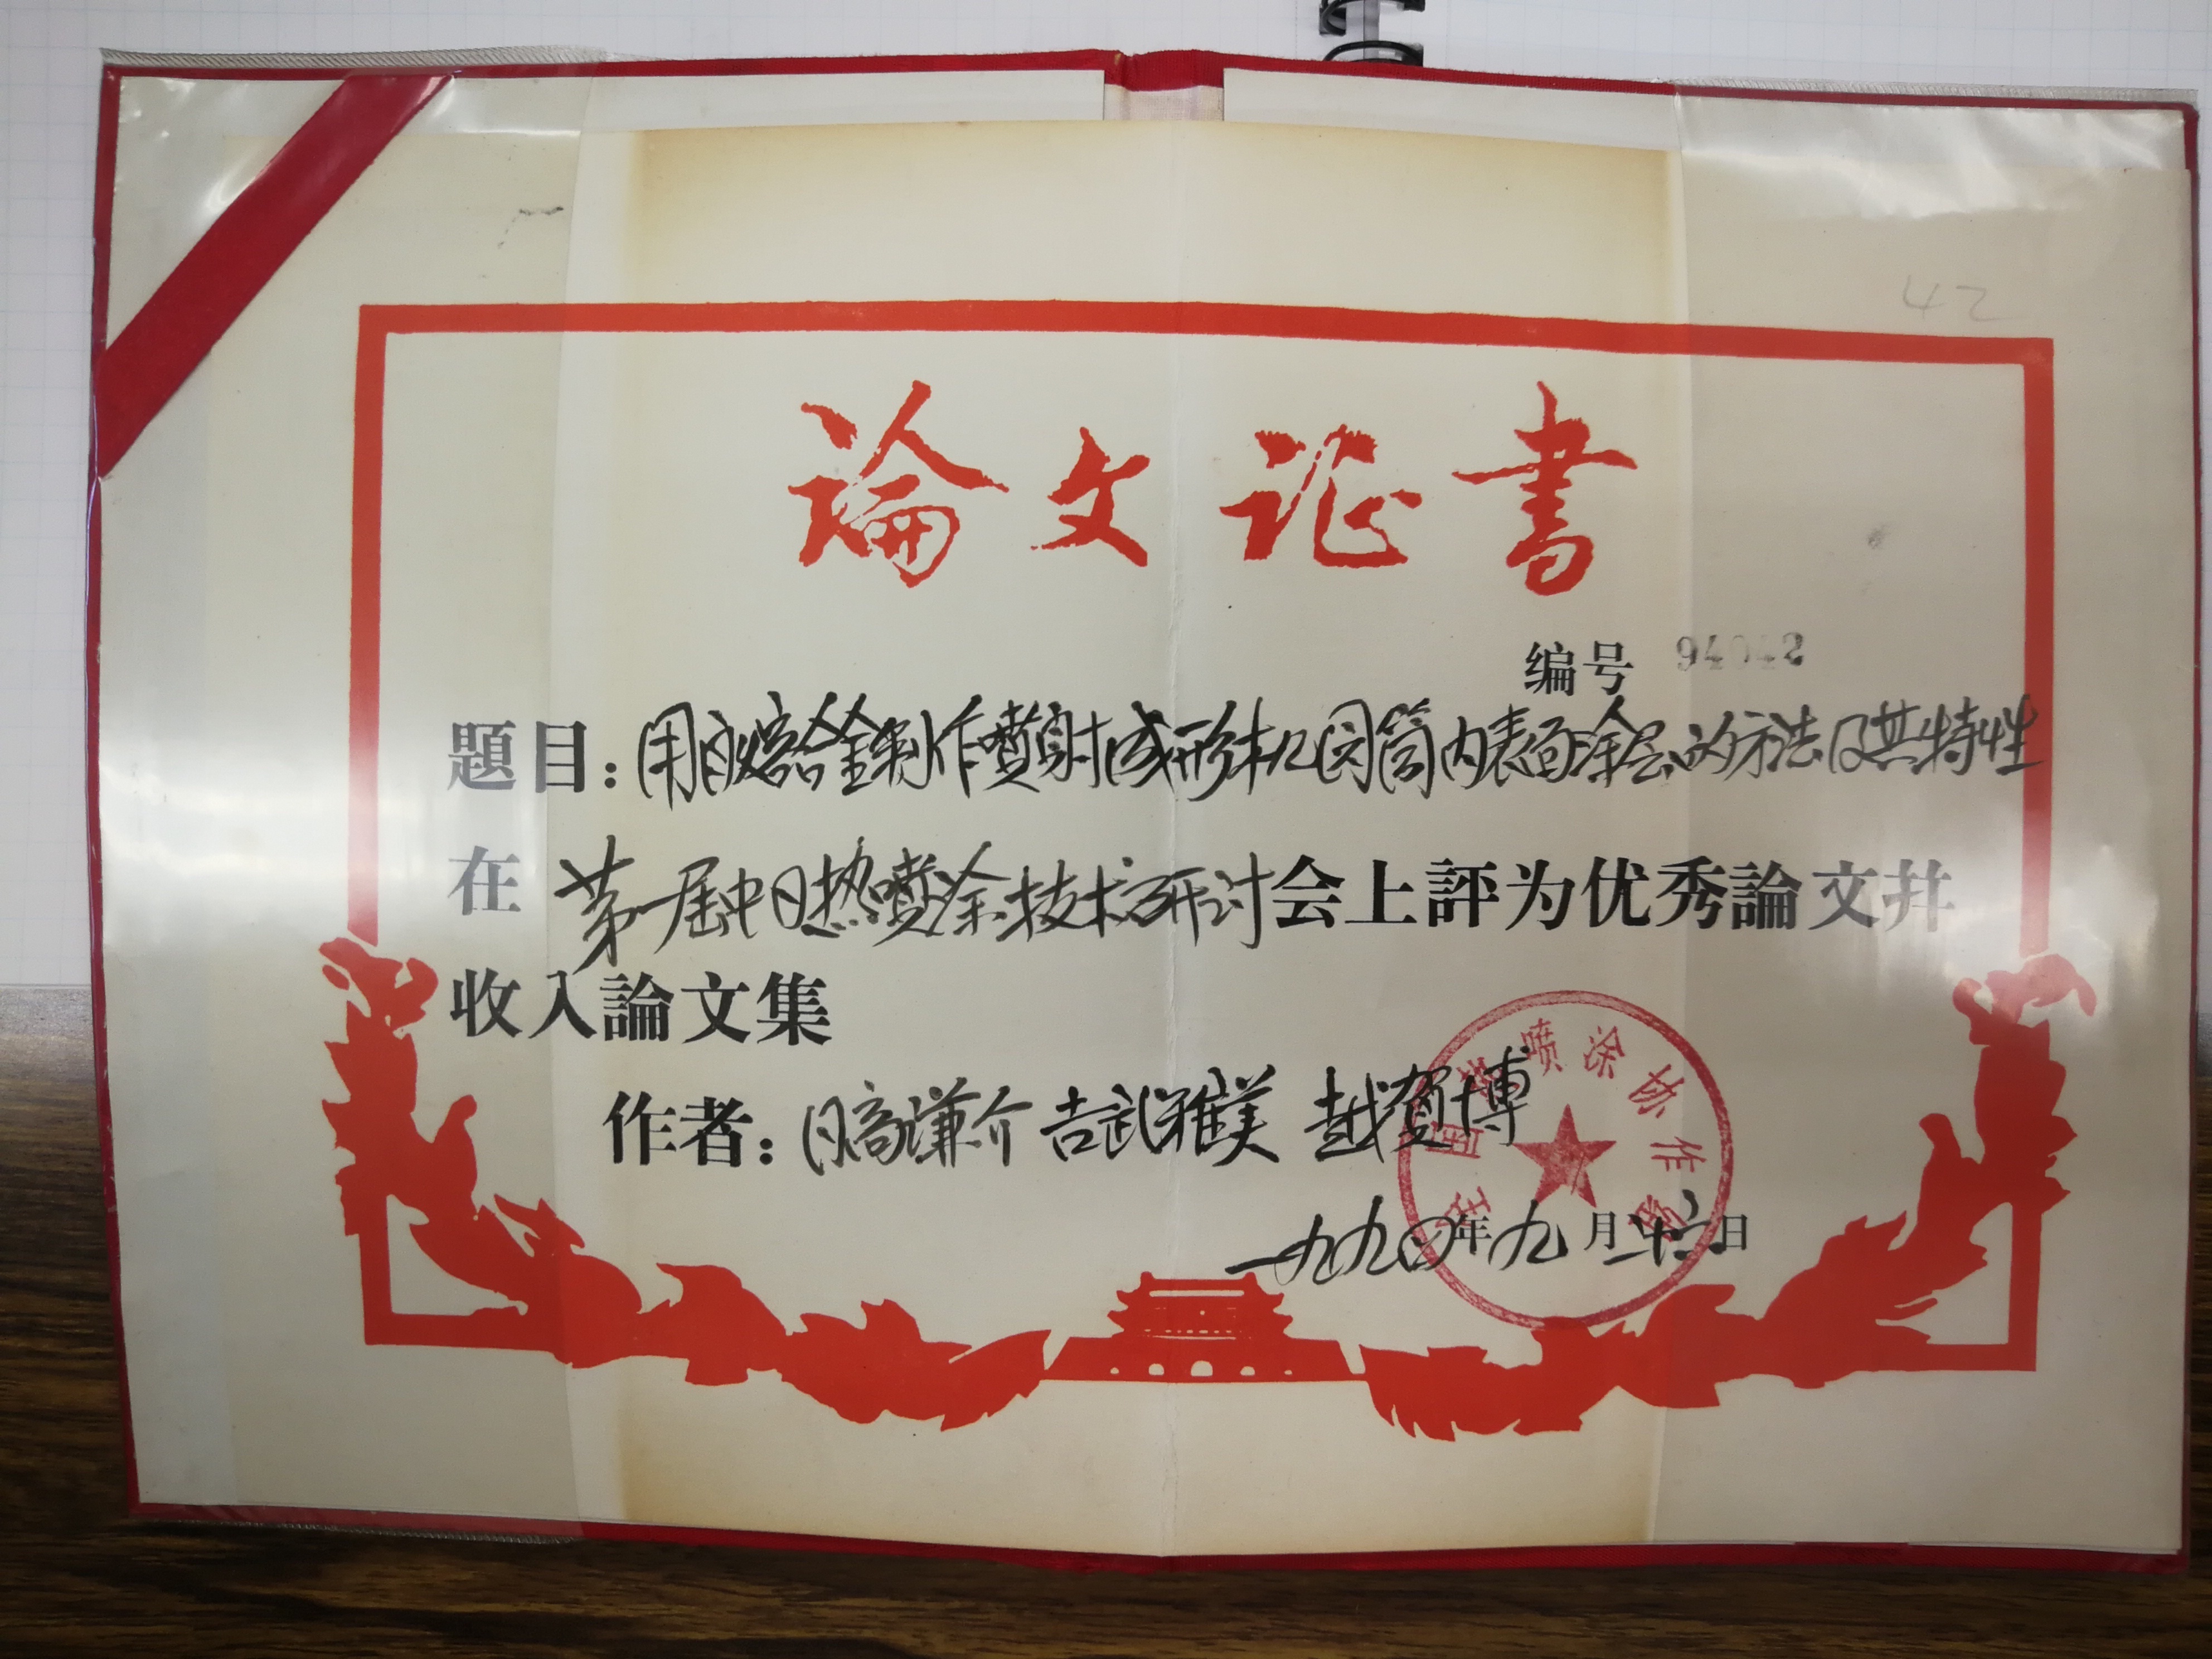 42
論文证書
编号 94042
題目：用自熔合金制作喷射成形机园筒内表面涂层的方法及其特性
在 第一届中日热喷涂技术研讨会上評为优秀論文并
收入論文集
作者：日高谦介 吉武雅美 越賀博
全国热喷涂协作组
一九九〇年九月二十六日